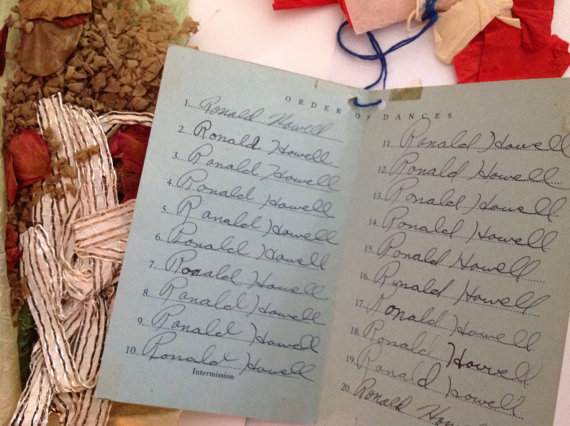 ORDER OF DANCES
1. Ronald Howell
2. Ronald Howell
3. Ronald Howell
4. Ronald Howell
5. Ronald Howell
6. Ronald Howell
7. Ronald Howell
8. Ronald Howell
9. Ronald Howell
10. Ronald Howell
Intermission
11. Ronald Howell
12. Ronald Howell
13. Ronald Howell
14. Ronald Howell
15. Ronald Howell
16. Ronald Howell
17. Ronald Howell
18. Ronald Howell
19. Ronald Howell
20. Ronald